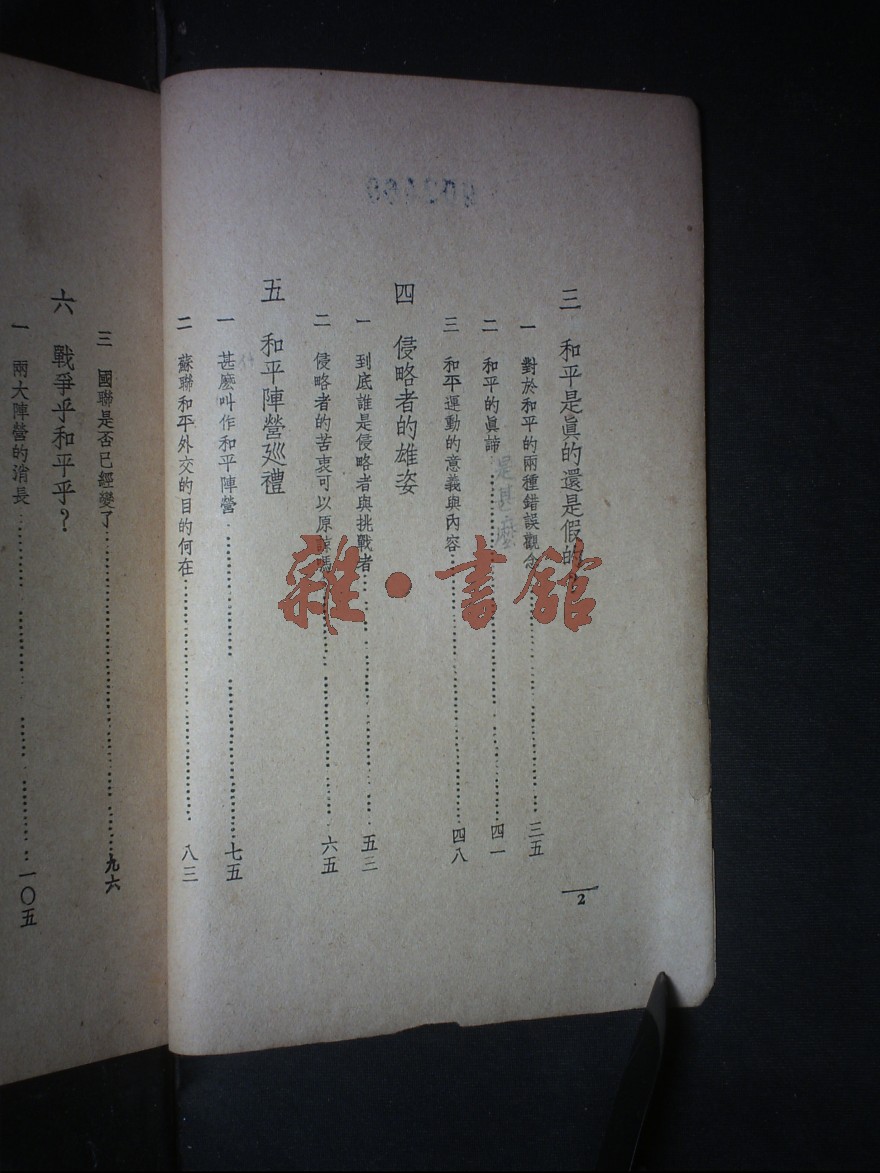 三　和平是眞的還是假的
一　對於和平的兩種錯誤觀念……三五
二　和平的眞諦……四一
是甚麼
三　和平運動的意義與內容……四八
四　侵略者的雄姿
一　到底誰是侵略者與挑戰者……五三
二　侵略者的苦衷可以原諒嗎……六五
五　和平陣營巡禮
一　甚麼叫作和平陣營……七五
二　蘇聯和平外交的目的何在……八三
2
三　國聯是否已經變了……九六
六　戰爭乎和平乎？
一　兩大陣營的消長……一〇五
雜·書館